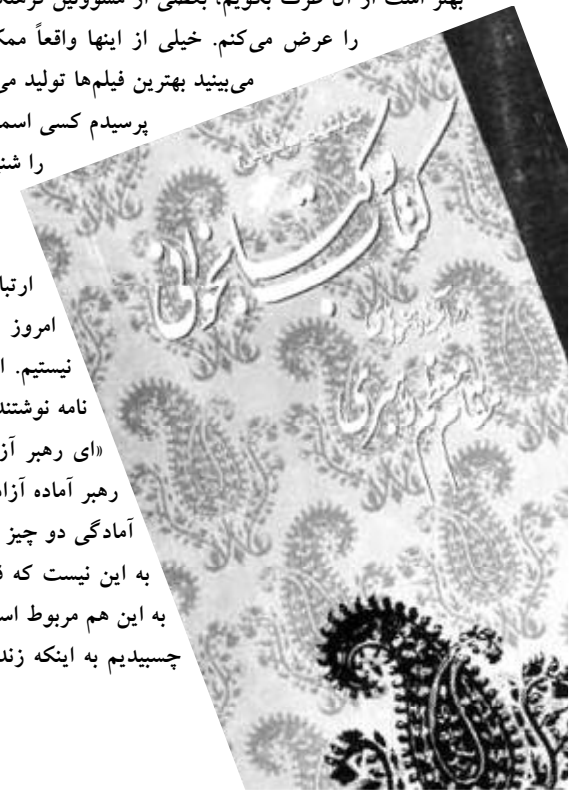 بهتر است از آن حرف بگویم، بعضی از مسؤولین فرهنگ
را عرض می‌کنم. خیلی از اینها واقعاً ممک
می‌بینید بهترین فیلم‌ها تولید می
پرسیدم کسی اسم
را شنی
ارتبا
امروز
نیستیم. ا
نامه نوشتند
«ای رهبر آز
رهبر آماده آزاد
آمادگی دو چیز
به این نیست که ف
به این هم مربوط اس
چسبیدیم به اینکه زند
کتاب و کتابخوانی
در آینه رهنمودهای
مقام معظم رهبری